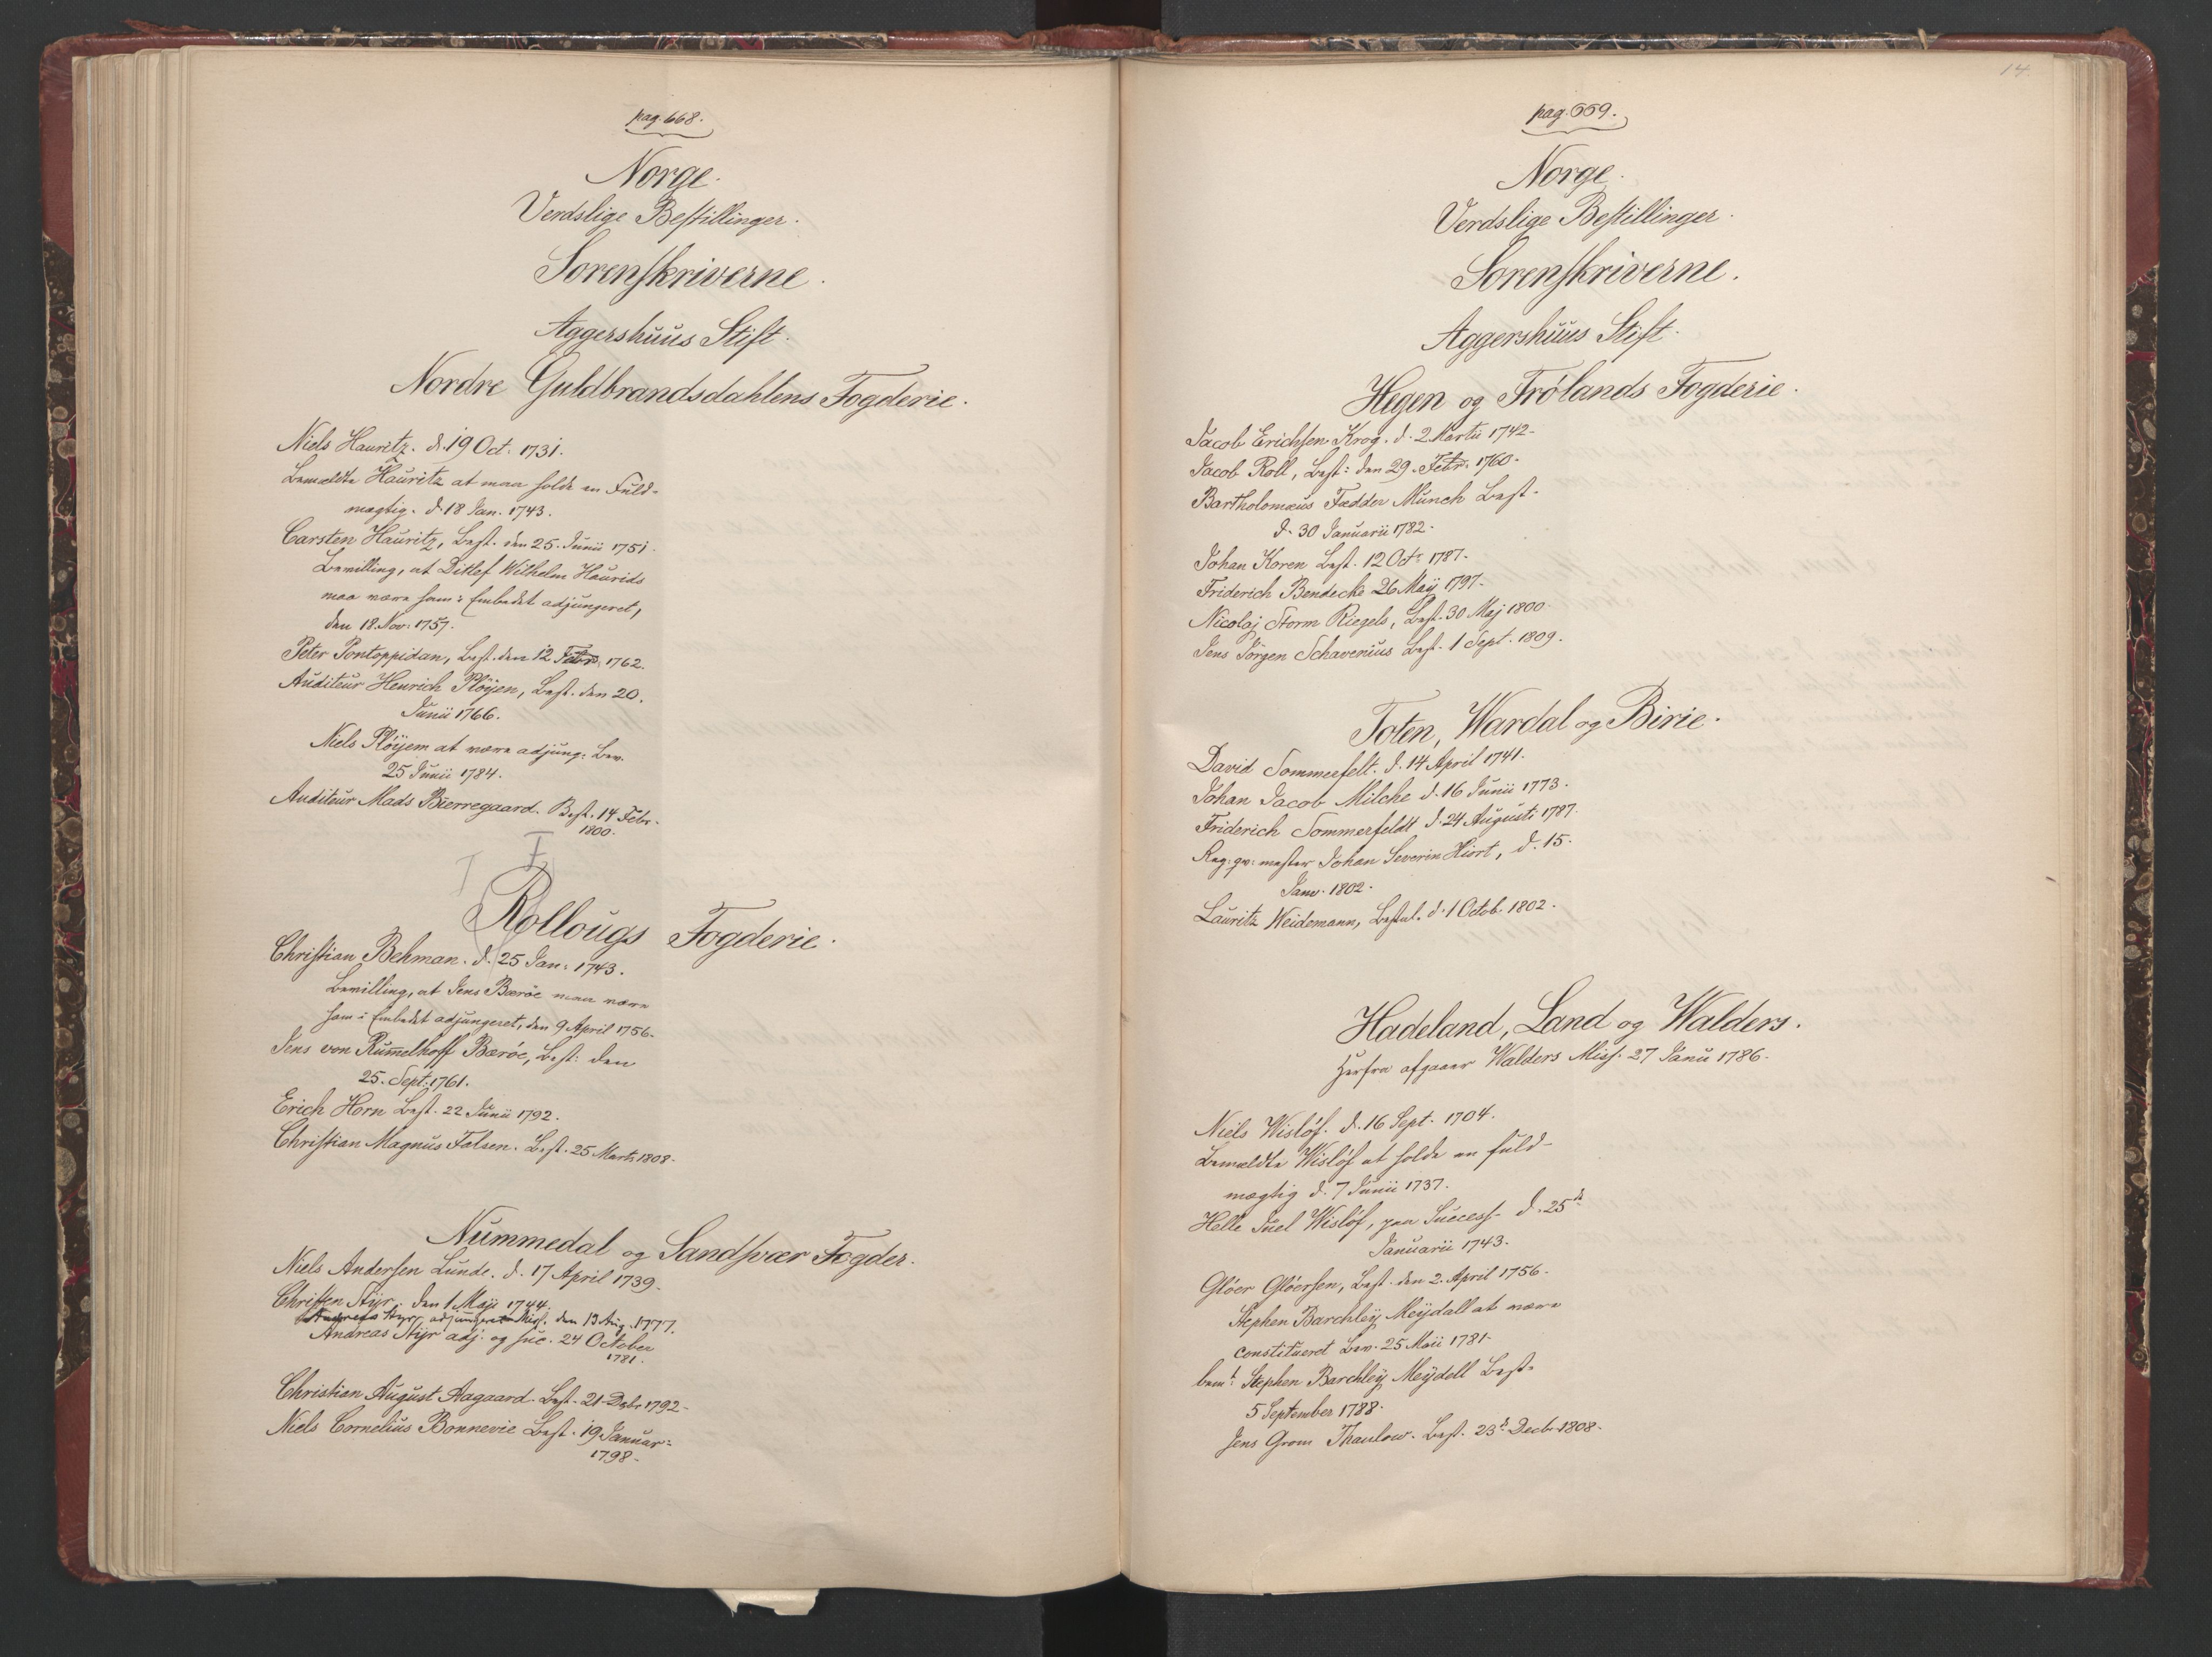 pag. 668.
Norge.
Verdslige Bestillinger.
Sorenskriverne.
Aggershuus Stift.
Nordre Guldbrandsdahlens Fogderie.
Niels Hauritz. d. 19 Oct. 1731.
Bemældte Hauritz at maa holde en Fuld-
mægtig. d. 18 Jan. 1743.
Carsten Hauritz, Best. den 25. Junii 1751.
Bevilling, at Ditlef Wilhelm Haurids
maa være ham i Embedet adjungeret,
den 18. Nov: 1757.
Peter Pontoppidan, Best. den 12 Febr. 1762.
Auditeur Henrich Pløyen, Best. den 20.
Junii 1766.
Niels Pløyem at være adjung: Bev.
25 Junii 1784.
Auditeur Mads Bierregaard. Best. 14 Febr.
1800.
Rollougs Fogderie.
Christian Behman. d. 25 Jan: 1743.
Bevilling, at Jens Bærøe maa være
ham i Embedet adjungeret, den 9 April 1756.
Jens von Rummelhoff Bærøe, Best: den
25. Sept: 1761.
Erich Horn Best. 22 Junii 1792.
Christian Magnus Falsen. Best. 25 Marts 1808.
Nummedal og Sandsvær Fogder.
Niels Andersen Lunde. d. 17 April 1739.
Christen Styr. den 1 Maji 1744.
Andreas Styr adjungeret Miss. den 13 Aug. 1777.
Andreas Styr adj. og suc. 24 October
1781.
Christian August Aagaard. Best. 21 Debr 1792.
Niels Cornelius Bonnevie Best. 19 Januar:
1798.
14.
pag. 669.
Norge.
Verdslige Bestillinger.
Sorenskriverne.
Aggershuus Stift.
Hegen og Frølands Fogderie.
Jacob Erichsen Krog. d. 2 Martii 1742.
Jacob Roll, Best: den 29. Febr. 1760.
Bartholomæus Fædder Munch Best.
d. 30 Januarii 1782.
Johan Koren Best. 12 Oct: 1787.
Friderich Bendeche 26 Maÿ 1797.
Nicolaj Storm Riegels, Best. 30 Maj 1800.
Jens Jörgen Schavenius Best. 1 Sept. 1809.
Toten, Wardal og Birie.
David Sommerfelt. d. 14 April 1741.
Johan Jacob Milche d. 16 Junii 1773.
Friderich Sommerfeldt d. 24 Augusti 1787.
Reg: qv: mester Johan Severin Hiort, d. 15.
Janv. 1802.
Lauritz Weidemann, Bestal. d. 1 Octob. 1802.
Hadeland, Land og Walders.
Herfra afgaaer Walders Miss. 27 Janu 1786.
Niels Wisløf. d. 16 Sept. 1704.
Bemældte Wisløf at holde en fuld-
mægtig d. 7 Junii 1737.
Helle Juel Wisløf, paa Success. d. 25de
Januarii 1743.
Gløer Gløersen, Best. den 2. April 1756.
Stephen Barchley Meydall at være
constitueret Bev. 25 Maii 1781.
bemt: Stephen Barchley Meydell Best.
5 September 1788.
Jens Grom Thaulow. Best. 23d Decbr 1808.